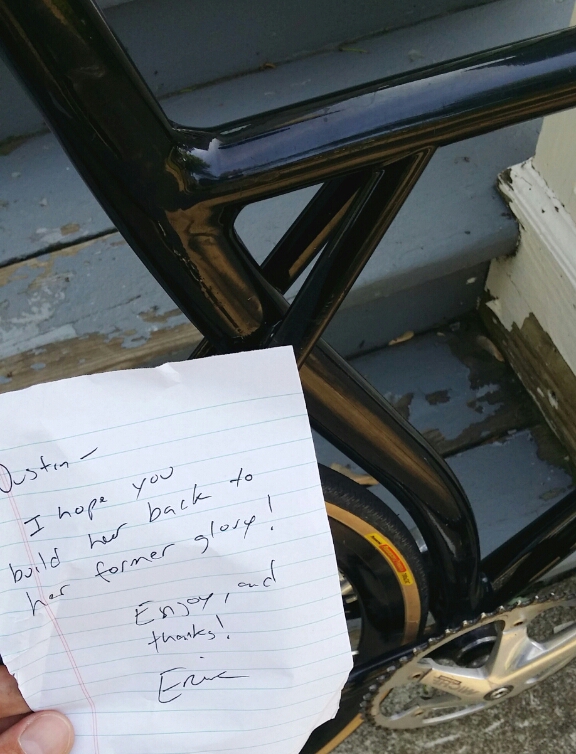 Dustin —
I hope you
build her back to
her former glory!
Enjoy, and
thanks!
Eric